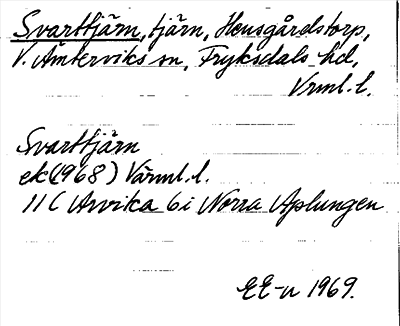 Svarttjärn, tjärn, Hensgårdstorp,
V. Ämterviks sn, Fryksdals hd,
Vrml. l.
Svarttjärn
ek (1968) Värml. l.
11 C Arvika 6i Norra Aplungen
EE-n 1969.